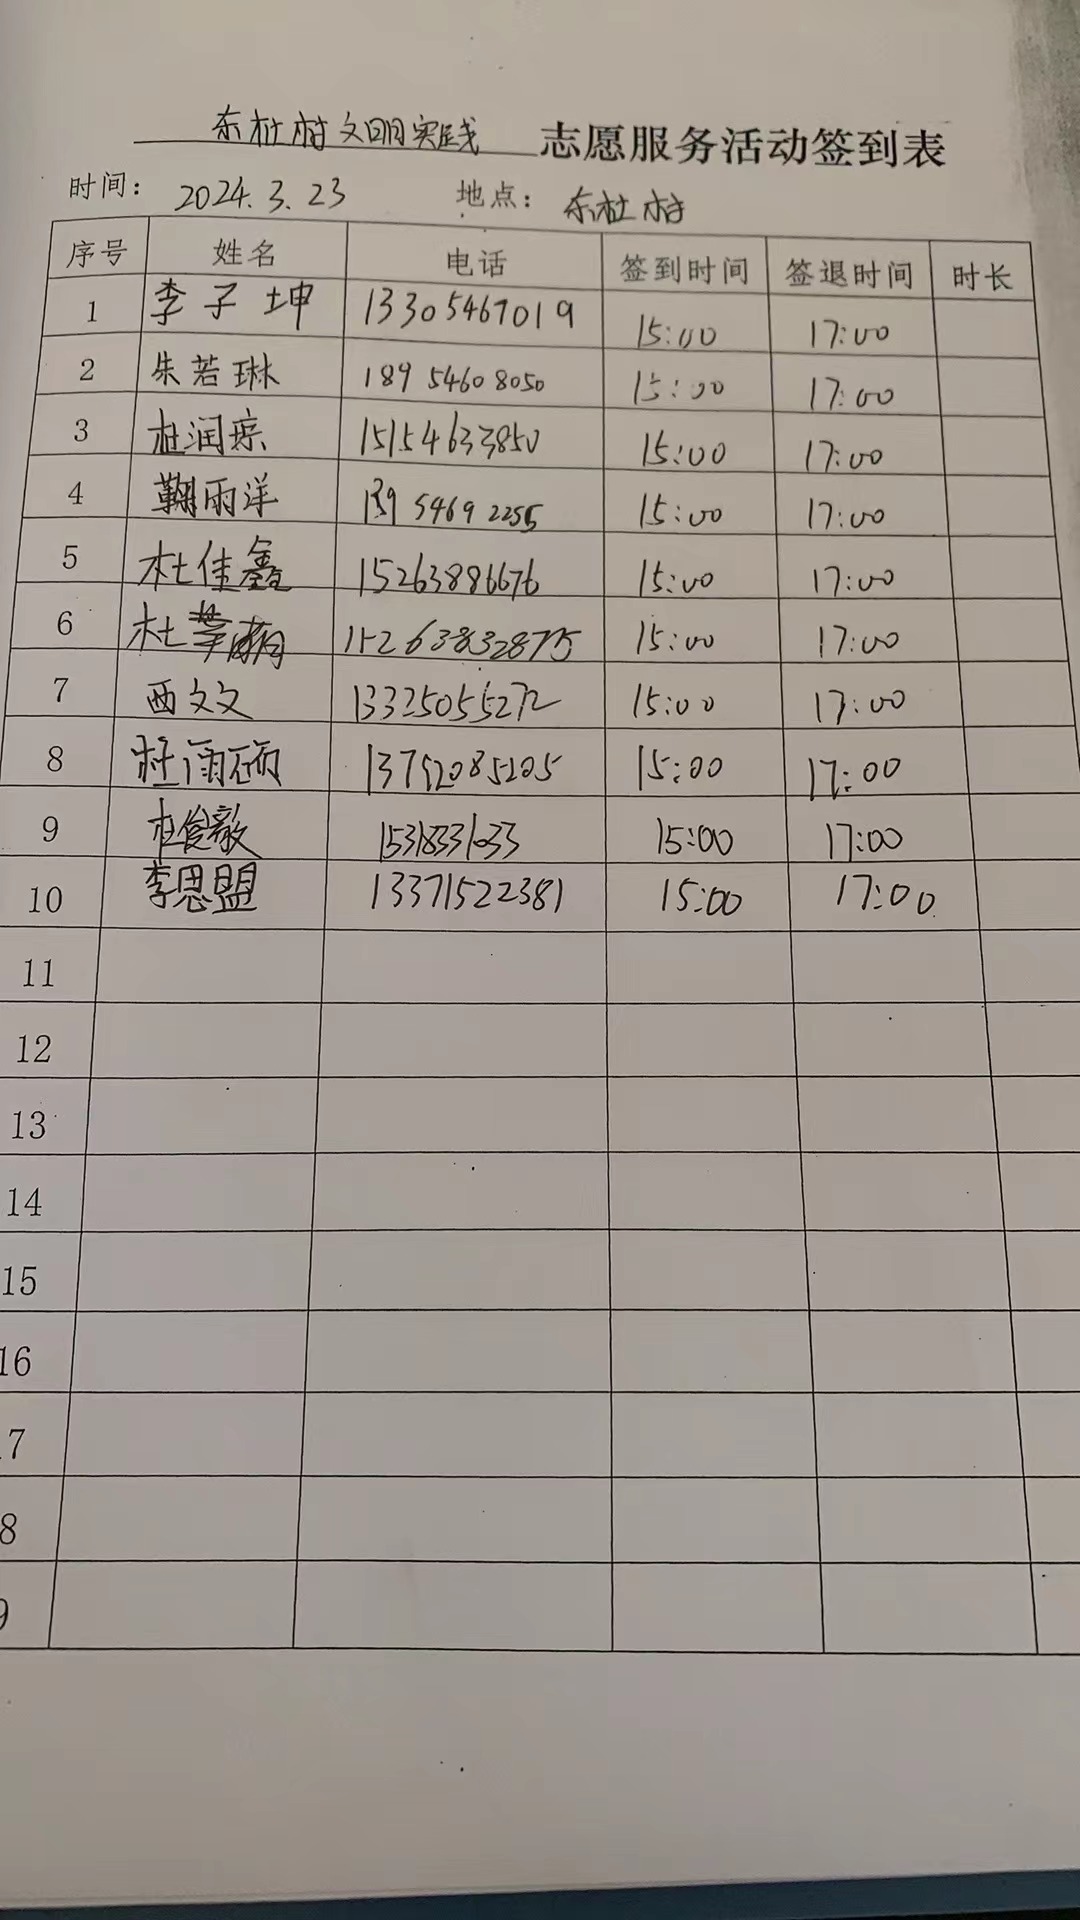 东杜村文明实践 志愿服务活动签到表
时间: 2024.3.23 地点: 东杜村
序号 姓名 电话 签到时间 签退时间 时长
1 李子坤 13305467019 15:00 17:00
2 朱若琳 18954608050 15:00 17:00
3 杜润 15154633850 15:00 17:00
4 雨洋 13954692255 15:00 17:00
5 杜佳鑫 15263886676 15:00 17:00
6 杜 15263832875 15:00 17:00
7 西文文 13325055272 15:00 17:00
8 杜雨硕 13752085205 15:00 17:00
9 杜俊毅 15:00 17:00
10 李思盟 13371522381 15:00 17:00
11
12
13
14
15
16
7
8
9